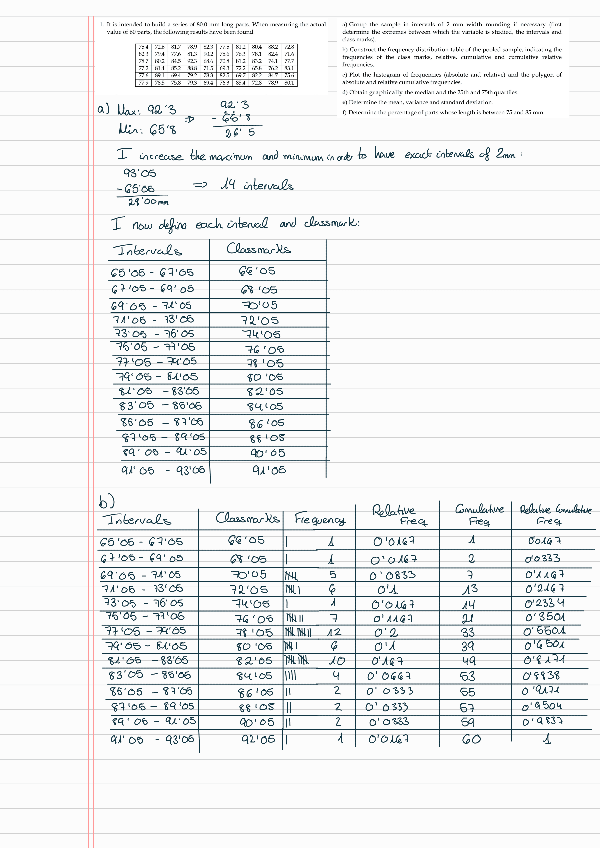 1. It is intended to build a series of 80.0 mm long parts. When measuring the actual
value of 60 parts, the following results have been found
a) Group the sample in intervals of 2 mm width rounding if necessary (first
determine the extremes between which the variable is studied, the intervals and
class marks).
b) Construct the frequency distribution table of the pooled sample, indicating the
frequencies of the class marks, relative, cumulative and cumulative relative
frequencies.
c) Plot the histogram of frequencies (absolute and relative) and the polygon of
absolute and relative cumulative frequencies.
d) Obtain graphically the median and the 25th and 75th quartiles
e) Determine the mean, variance and standard deviation
f) Determine the percentage of parts whose length is between 75 and 85 mm
a) Max: 92'3 ⇒ 92'3
Min: 65'8 - 65'8
26'5
I increase the maximum and minimum in order to have exact intervals of 2mm:
93'05
-65'05 ⇒ 14 intervals
28'00mm
I now define each interval and classmark:
Intervals Classmarks
65'05 - 67'05 66'05
67'05 - 69'05 68'05
69'05 - 71'05 70'05
71'05 - 73'05 72'05
73'05 - 75'05 74'05
75'05 - 77'05 76'05
77'05 - 79'05 78'05
79'05 - 81'05 80'05
81'05 - 83'05 82'05
83'05 - 85'05 84'05
85'05 - 87'05 86'05
87'05 - 89'05 88'05
89'05 - 91'05 90'05
91'05 - 93'05 91'05
b)
Intervals Classmarks Frequency Relative Freq. Cumulative Freq. Relative Cumulative Freq.
65'05 - 67'05 66'05 | 1 0'0167 1 0'0167
67'05 - 69'05 68'05 | 1 0'0167 2 0'0333
69'05 - 71'05 70'05 5 0'0833 7 0'1167
71'05 - 73'05 72'05 6 0'1 13 0'2167
73'05 - 75'05 74'05 | 1 0'0167 14 0'2334
75'05 - 77'05 76'05 7 0'1167 21 0'3501
77'05 - 79'05 78'05 12 0'2 33 0'5501
79'05 - 81'05 80'05 6 0'1 39 0'6501
81'05 - 83'05 82'05 10 0'167 49 0'8171
83'05 - 85'05 84'05 |||| 4 0'0667 53 0'8838
85'05 - 87'05 86'05 || 2 0'0333 55 0'9171
87'05 - 89'05 88'05 || 2 0'0333 57 0'9504
89'05 - 91'05 90'05 || 2 0'0333 59 0'9837
91'05 - 93'05 92'05 | 1 0'0167 60 1